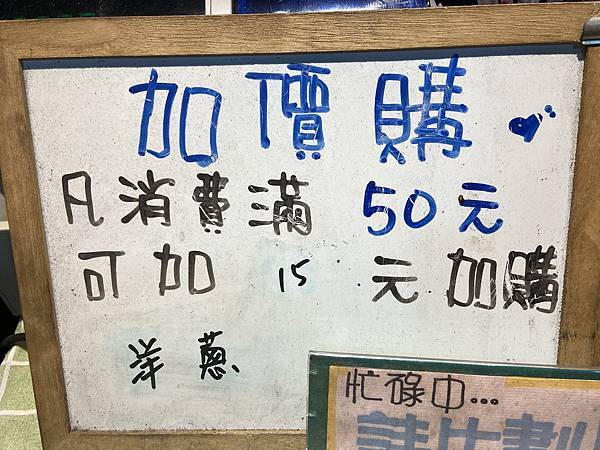 加價購
凡消費滿 50元
可加 15 元加購
洋蔥
忙碌中...